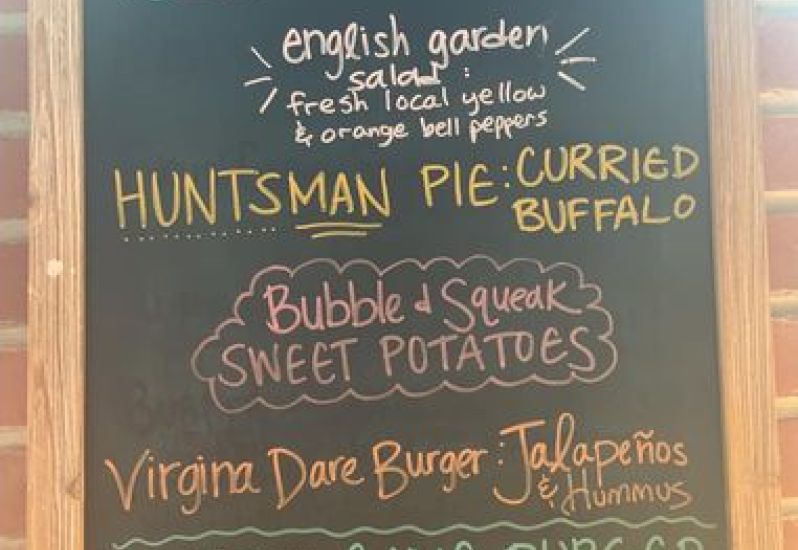 english garden
salad :
fresh local yellow
& orange bell peppers
HUNTSMAN PIE: CURRIED
BUFFALO
Bubble & Squeak
SWEET POTATOES
Virgina Dare Burger: Jalapeños
& Hummus